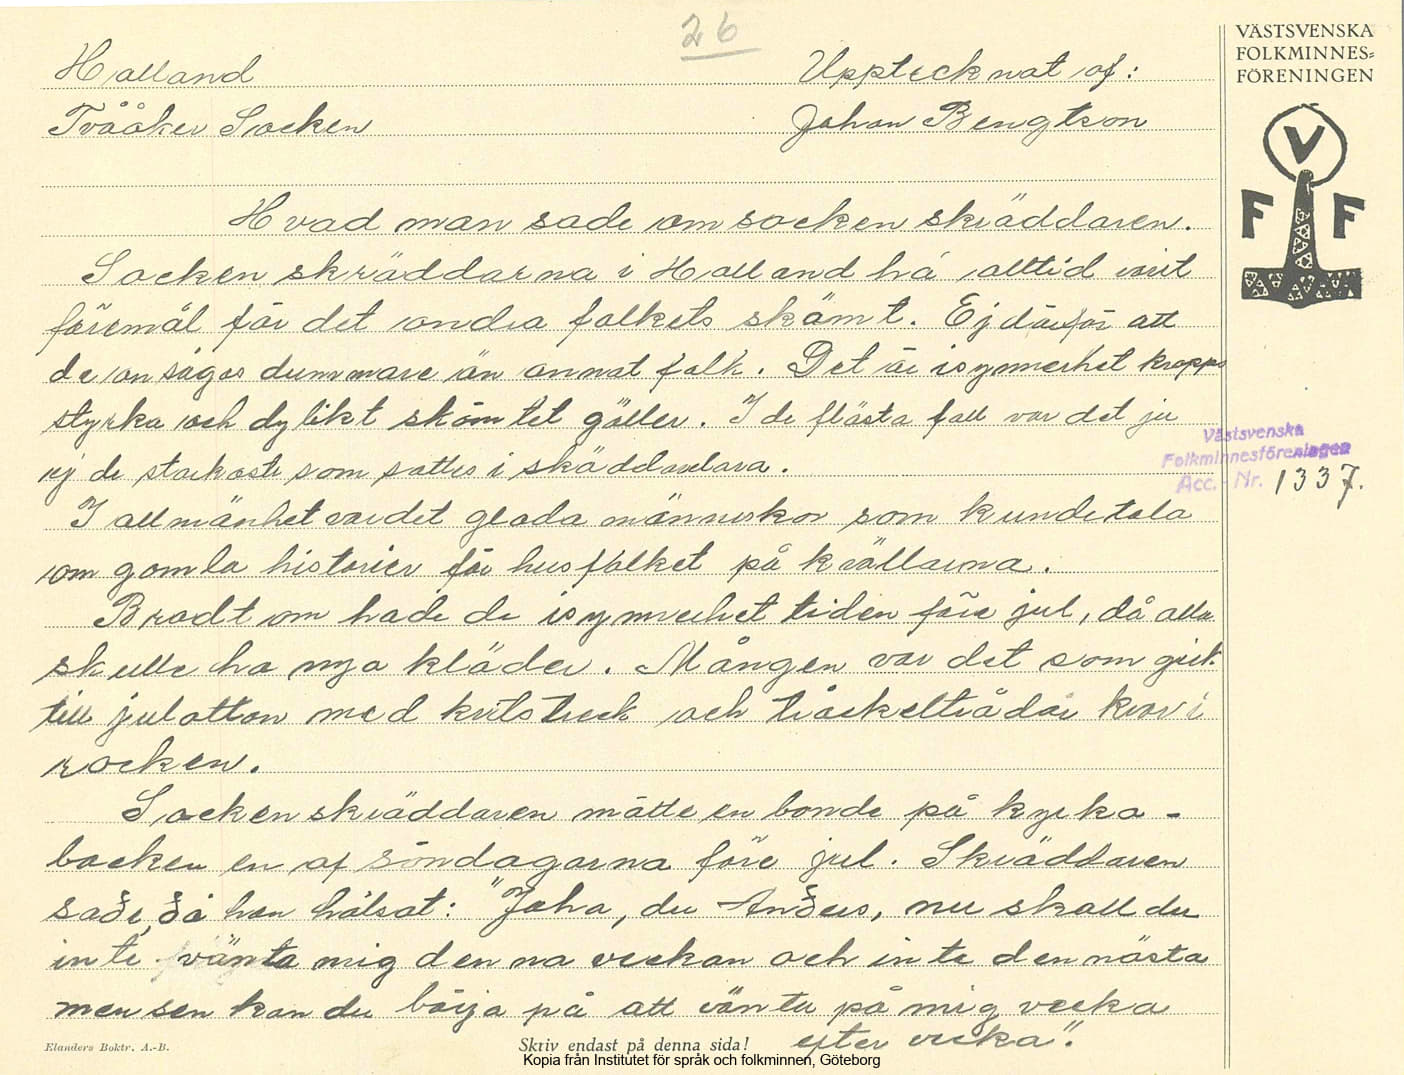 26
VÄSTSVENSKA
FOLKMINNES=
FÖRENINGEN
V
F F
Halland
Upptecknat af:
Tvååker Socken
Johan Bengtson
Hvad man sade om socken skräddaren.
Socken skräddarna i Halland há alltid varit
föremål för det andra folkets skämt. Ej därför att
de ansågos dummare än annat folk. Det är isynnerhet kropps
styrka och dylikt skämtet gäller. I de flästa fall var det ju
ej de starkaste som sattes i skäddarelara.
I allmänhet var det glada människor som kunde tala
om gamla historier för husfolket på kvällarna.
Brådt om hade de isynnerhet tiden före jul, då alla
skulle ha nya kläder. Mången var det som gick
till julottan med kritstreck och tråckeltrådar kvar i
rocken.
Sockenskräddaren mötte en bonde på kyrka-
backen en af söndagarna före jul. Skräddaren
sade, då han hälsat: "Jaha, du Anders, nu skall du
inte vänta mig denna veckan och inte den nästa
men sen kan du börja på att vänta på mig vecka
efter vecka".
Västsvenska
Folkminnesföreningen
Acc.- Nr. 1337.
Elanders Boktr. A.-B.
Skriv endast på denna sida!
Kopia från Institutet för språk och folkminnen, Göteborg